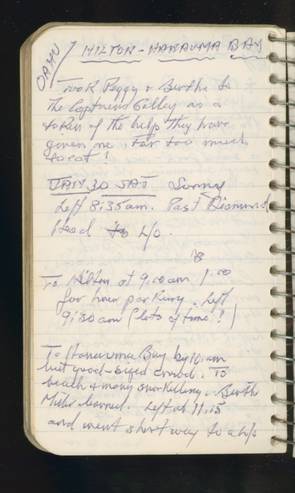 OAHU / HILTON - HANAUMA BAY
Took Peggy & Berthe to
the Captains Galley as a
token of the help they have
given me. Far too much
to eat!
JAN 30 SAT Sunny
Left 8:35am. Past Diamond
Head to
To Hilton at 9.00am 1.00
for hour parking. Left
9:30am (lots of time!)
To Hanauma Bay by 10 am
but good-sized crowd. To
beach & many snorkelling. Berthe
Left at 11.15
and went short way to a